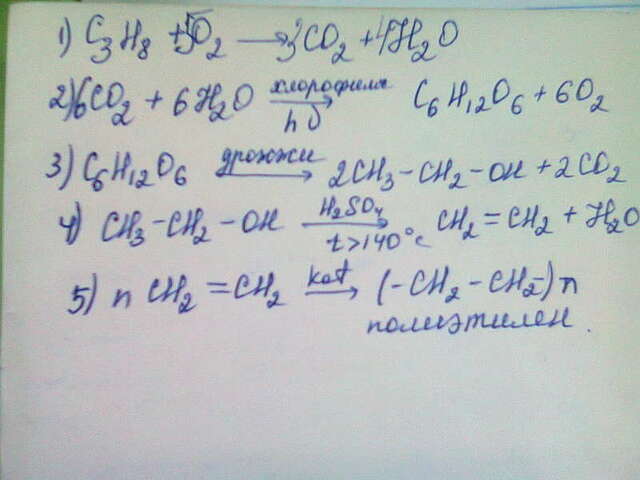 1) C₃H₈ + 5O₂ → 3CO₂ + 4H₂O
2) 6CO₂ + 6H₂O хлорофилл → hυ C₆H₁₂O₆ + 6O₂
3) C₆H₁₂O₆ дрожжи → 2CH₃-CH₂-OH + 2CO₂
4) CH₃-CH₂-OH H₂SO₄ → t>140°c CH₂=CH₂ + H₂O
5) n CH₂=CH₂ kat → (-CH₂-CH₂-)n
полиэтилен.